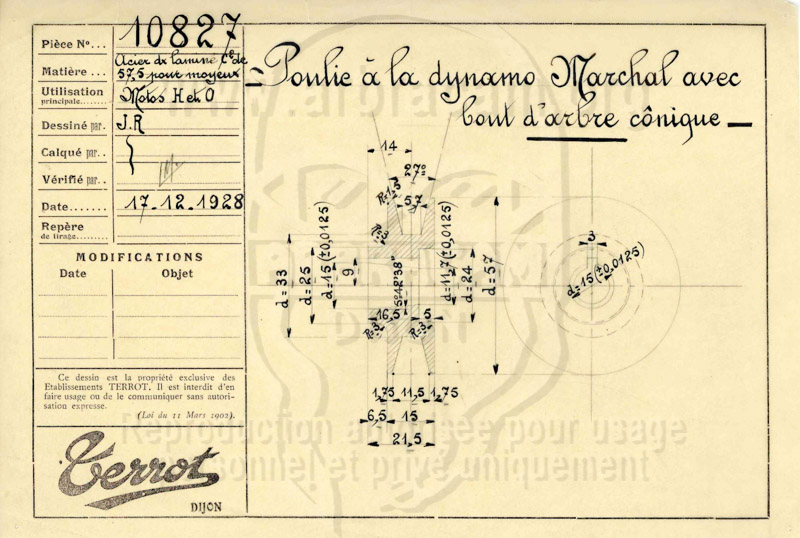 Pièce N°... 10827
Matière ... Acier dx laminé Ce de
57,5 pour moyeux
Utilisation Motos H et O
principale........
Dessiné par. J.R
Calqué par..
Vérifié par..
Date....... 17-12-1928
Repère
de tirage........
MODIFICATIONS
Date Objet
Ce dessin est la propriété exclusive des
Etablissements TERROT. Il est interdit d'en
faire usage ou de le communiquer sans autori-
sation expresse.
(Loi du 11 Mars 1902).
Terrot
DIJON
= Poulie à la dynamo Marchal avec
bout d'arbre cônique _
14
27°
R=1,5
5,7
R=3
d=33
d=25
d=15(±0,0125)
9
5°42'38"
d=11,7(±0,0125)
d=24
d=57
16,5
5
R=3
R=3
1,75 11,5 1,75
6,5 15
21,5
3
d=15(±0,0125)
Reproduction autorisée pour usage
personnel et privé uniquement